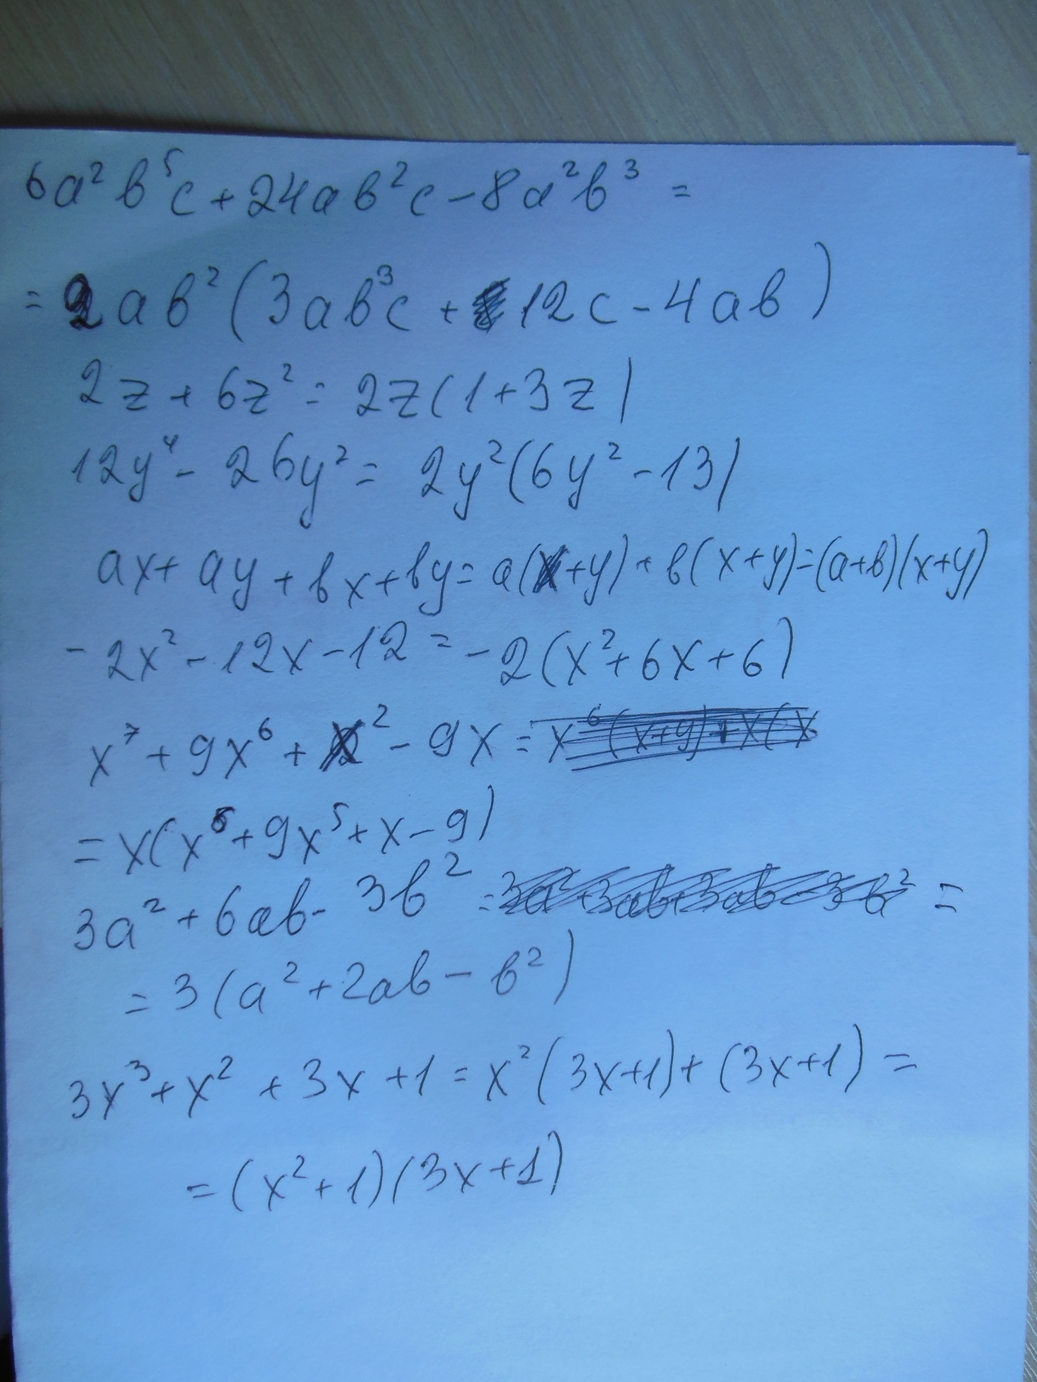 6a²b⁵c + 24ab²c - 8a²b³ =
= 2ab²(3ab³c + 12c - 4ab)
2z + 6z² = 2z(1 + 3z)
12y⁴ - 26y² = 2y²(6y² - 13)
ax + ay + bx + by = a(x+y) + b(x+y) = (a+b)(x+y)
-2x² - 12x - 12 = -2(x² + 6x + 6)
x⁷ + 9x⁶ + x² - 9x = x⁶(x+y) + x(x
= x(x⁶ + 9x⁵ + x - 9)
3a² + 6ab - 3b² = 3a² + 3ab + 3ab - 3b² =
= 3(a² + 2ab - b²)
3x³ + x² + 3x + 1 = x²(3x+1) + (3x+1) =
= (x² + 1)(3x + 1)